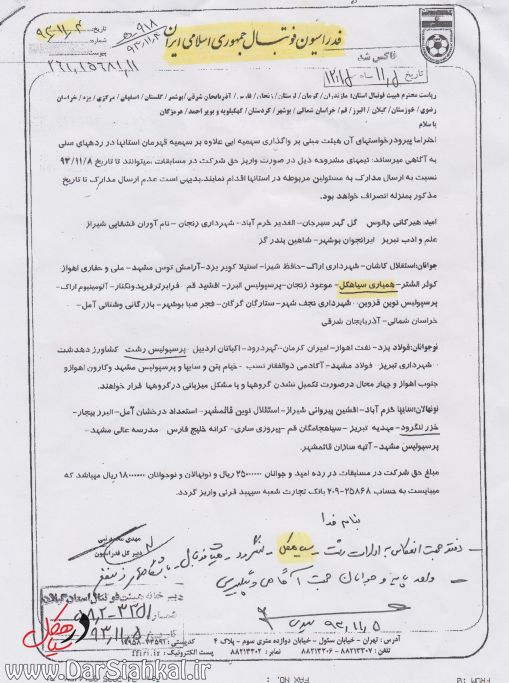 فدراسیون فوتبال جمهوری اسلامی ایران
تاریخ: ۹۳/۱۱/۴
پیوست
فاکس شد
ریاست محترم هیئت فوتبال استان: مازندران / کرمان / لرستان / زنجان / فارس / آذربایجان شرقی / بوشهر / گلستان / اصفهان / مرکزی / یزد / خراسان
رضوی / خوزستان / گیلان / البرز / قم / خراسان شمالی / بوشهر / کردستان / کهکیلویه و بویر احمد / هرمزگان
با سلام
احتراما پیرو درخواستهای آن هیئت مبنی بر واگذاری سهمیه ایی علاوه بر سهمیه قهرمان استانها در رده های سنی
به آگاهی میرساند: تیمهای مشروحه ذیل در صورت واریز حق شرکت در مسابقات ،میتوانند تا تاریخ ۹۳/۱۱/۸
نسبت به ارسال مدارک به مسئولین مربوطه در استانها اقدام نمایند.بدیهی است عدم ارسال مدارک تا تاریخ
مذکور بمنزله انصراف خواهد بود.
امید: هیرکانی چالوس گل گهر سیرجان- الغدیر خرم آباد- شهرداری زنجان - نام آوران قشقایی شیراز
علم و ادب تبریز ایرانجوان بوشهر- شاهین بندر گز
جوانان: استقلال کاشان- شهرداری اراک- حافظ شیراز- استیلا کویر یزد- آرامش توس مشهد- ملی و حفاری اهواز
کوثر الشتر- همیاری سیاهکل- موعود زنجان- پرسپولیس البرز- افشید قم فرابرتر فریدونکنار- آلومینیوم اراک-
پرسپولیس نوین قزوین شهرداری نجف شهر- ستارگان گرگان- فجر صبا بوشهر- بازرگانی وشتانی آمل-
خراسان شمالی- آذربایجان شرقی
نوجوانان: فولاد یزد- نفت اهواز- امیران کرمان- گهردرود- اکباتان اردبیل پرسپولیس رشت کشاورز دهدشت
شهرداری تبریز فولاد مشهد- آکادمی ذوالفقار نسب- خیام بتن و سایپا و پرسپولیس مشهد وکارون اهواز و
جنوب اهواز و چهار محال درصورت تکمیل نشدن گروهها و یا مشکل میزبانی درگروهها قرار خواهند.
نونهالان: سایپا خرم آباد- افشین پیروانی شیراز- استقلال نوین قائمشهر- استعداد درخشان آمل- البرز بیجار-
خزر لنگرود- مهدیه تبریز- سیاهجامگان قم- پیروزی ساری- کرانه خلیج فارس مدرسه عالی مشهد-
پرسپولیس مشهد- آتیه سازان قائمشهر.
مبلغ حق شرکت در مسابقات در رده امید و جوانان ۲۵۰۰۰۰۰۰ ریال و نونهالان و نوجوانان ۱۸۰۰۰۰۰۰ ریال میباشد که
میبایست به حساب ۲۵۸۶۸-۲۰۹ بانک تجارت شعبه سپهبد قرنی واریز گردد.
بنام خدا
دبیر کل فدراسیون
دبیرخانه هیئت فوتبال استان گیلان
۹۳/۱۱/۵
۹۳/۱۱/۵
آدرس: تهران - خیابان سئول - خیابان دوازده متری سوم - پلاک ۴
در سیاهکل
www.DarSiahkal.ir
FAX NO. :
FROM :